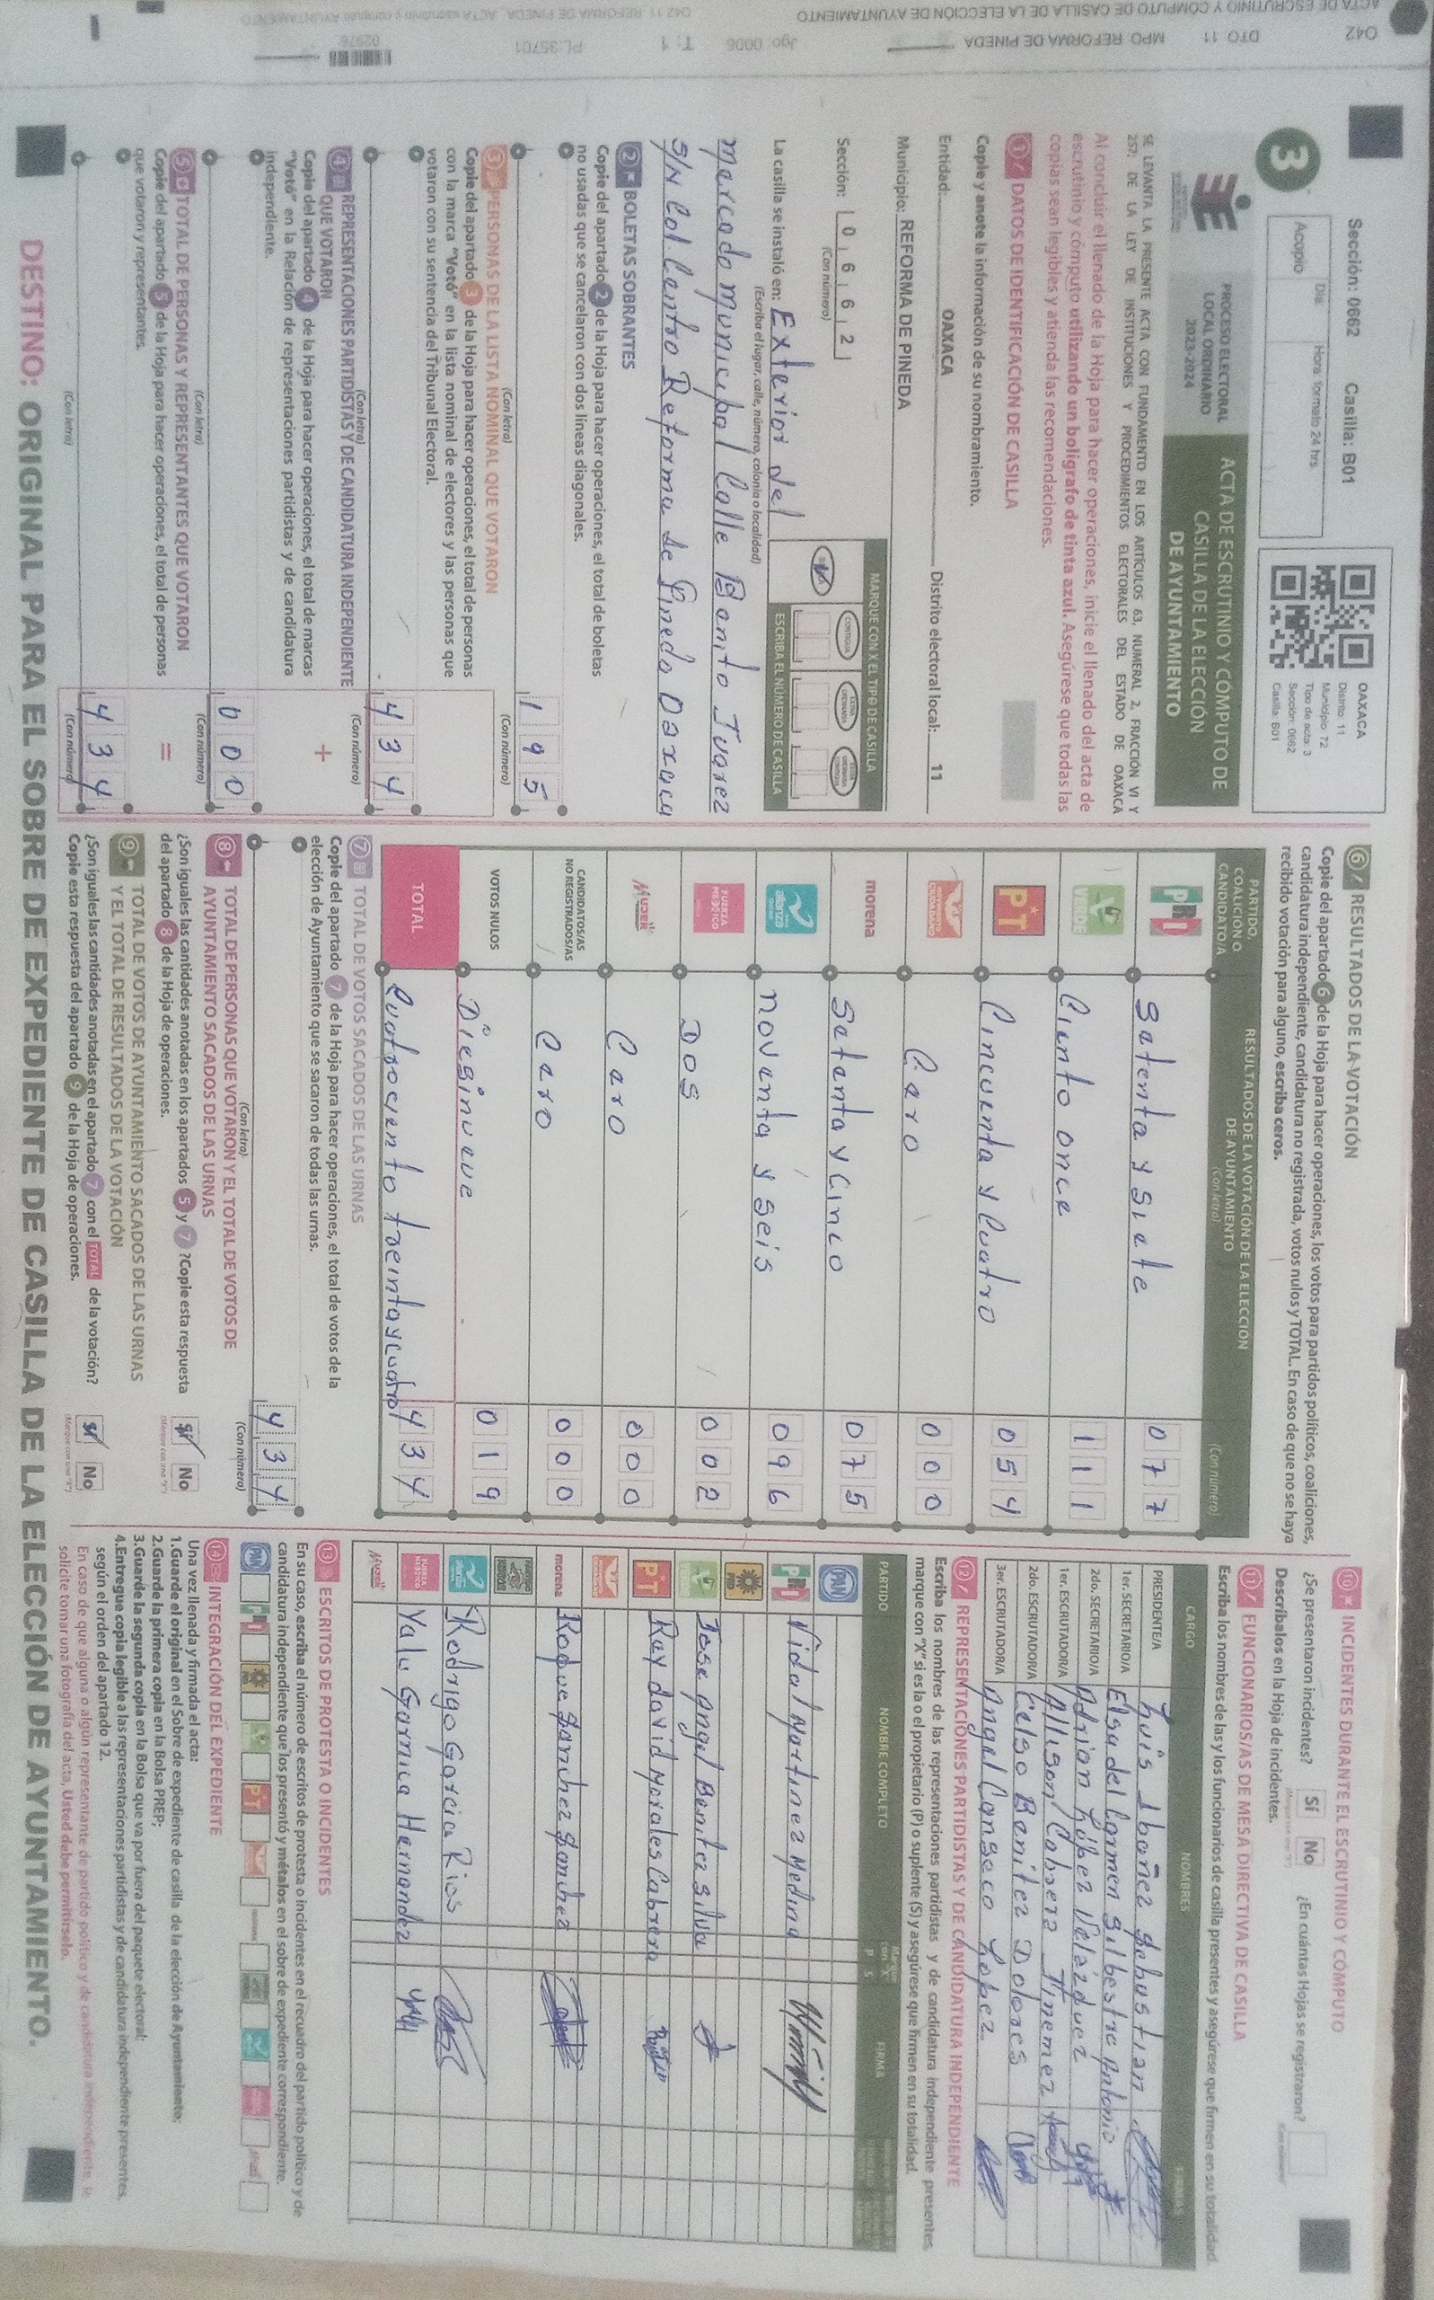 Sección: 0662 Casilla: B01
3
Acopio
Día:
Hora: formato 24 hrs.
OAXACA
Distrito: 11
Municipio: 72
Tipo de acta: 3
Sección: 0662
Casilla: B01
PROCESO ELECTORAL
LOCAL ORDINARIO
2023-2024
ACTA DE ESCRUTINIO Y CÓMPUTO DE
CASILLA DE LA ELECCIÓN
DE AYUNTAMIENTO
SE LEVANTA LA PRESENTE ACTA CON FUNDAMENTO EN LOS ARTÍCULOS 63, NUMERAL 2, FRACCIÓN VI Y
257; DE LA LEY DE INSTITUCIONES Y PROCEDIMIENTOS ELECTORALES DEL ESTADO DE OAXACA
Al concluir el llenado de la Hoja para hacer operaciones, inicie el llenado del acta de
escrutinio y cómputo utilizando un bolígrafo de tinta azul. Asegúrese que todas las
copias sean legibles y atienda las recomendaciones.
1 DATOS DE IDENTIFICACIÓN DE CASILLA
Copie y anote la información de su nombramiento.
Entidad: OAXACA Distrito electoral local: 11
Municipio: REFORMA DE PINEDA
Sección: 0 6 6 2
(Con número)
MARQUE CON X EL TIPO DE CASILLA
ESCRIBA EL NÚMERO DE CASILLA
La casilla se instaló en: Exterior del
(Escriba el lugar, calle, número, colonia o localidad)
mercado municipal Calle Benito Juarez
S/N Col. Centro Reforma de Pineda Oaxaca
2 BOLETAS SOBRANTES
Copie del apartado 2 de la Hoja para hacer operaciones, el total de boletas
no usadas que se cancelaron con dos líneas diagonales.
1 9 5
(Con letra) (Con número)
3 PERSONAS DE LA LISTA NOMINAL QUE VOTARON
Copie del apartado 3 de la Hoja para hacer operaciones, el total de personas
con la marca "Votó" en la lista nominal de electores y las personas que
votaron con su sentencia del Tribunal Electoral.
4 3 4
(Con letra) (Con número)
4 REPRESENTACIONES PARTIDISTAS Y DE CANDIDATURA INDEPENDIENTE
QUE VOTARON
+
Copie del apartado 4 de la Hoja para hacer operaciones, el total de marcas
"Votó" en la Relación de representaciones partidistas y de candidatura
independiente.
0 0 0
(Con letra) (Con número)
5 TOTAL DE PERSONAS Y REPRESENTANTES QUE VOTARON
=
Copie del apartado 5 de la Hoja para hacer operaciones, el total de personas
que votaron y representantes.
4 3 4
(Con letra) (Con número)
6 RESULTADOS DE LA VOTACIÓN
Copie del apartado 6 de la Hoja para hacer operaciones, los votos para partidos políticos, coaliciones,
candidatura independiente, candidatura no registrada, votos nulos y TOTAL. En caso de que no se haya
recibido votación para alguno, escriba ceros.
PARTIDO,
COALICIÓN O
CANDIDATO/A
RESULTADOS DE LA VOTACIÓN DE LA ELECCIÓN
DE AYUNTAMIENTO
(Con letra) (Con número)
PRI Satenta y Siete 0 7 7
VERDE Ciento once 1 1 1
PT Cincuenta y Cuatro 0 5 4
Cero 0 0 0
morena Setenta y Cinco 0 7 5
alianza noventa y seis 0 9 6
FUERZA MÉXICO DOS 0 0 2
MUJER Cero 0 0 0
CANDIDATOS/AS
NO REGISTRADOS/AS Cero 0 0 0
VOTOS NULOS Diesinueve 0 1 9
TOTAL Cuatrociento treintaycuatro 4 3 4
7 TOTAL DE VOTOS SACADOS DE LAS URNAS
Copie del apartado 7 de la Hoja para hacer operaciones, el total de votos de la
elección de Ayuntamiento que se sacaron de todas las urnas.
4 3 4
(Con letra) (Con número)
8 TOTAL DE PERSONAS QUE VOTARON Y EL TOTAL DE VOTOS DE
AYUNTAMIENTO SACADOS DE LAS URNAS
¿Son iguales las cantidades anotadas en los apartados 5 y 7 ? Copie esta respuesta
del apartado 8 de la Hoja de operaciones.
Sí No
9 TOTAL DE VOTOS DE AYUNTAMIENTO SACADOS DE LAS URNAS
Y EL TOTAL DE RESULTADOS DE LA VOTACIÓN
¿Son iguales las cantidades anotadas en el apartado 7 con el TOTAL de la votación?
Copie esta respuesta del apartado 9 de la Hoja de operaciones.
Sí No
10 INCIDENTES DURANTE EL ESCRUTINIO Y CÓMPUTO
¿Se presentaron incidentes? Sí No ¿En cuántas Hojas se registraron?
Descríbalos en la Hoja de incidentes.
11 FUNCIONARIOS/AS DE MESA DIRECTIVA DE CASILLA
Escriba los nombres de las y los funcionarios de casilla presentes y asegúrese que firmen en su totalidad.
CARGO NOMBRES FIRMAS
PRESIDENTE/A Luis Ibañez Sebustian
1er. SECRETARIO/A Elsa del Carmen Silbestre Antonio
2do. SECRETARIO/A Adrian López Velázquez
1er. ESCRUTADOR/A Allison Cabrera Jimemez
2do. ESCRUTADOR/A Celso Benitez Dolores
3er. ESCRUTADOR/A Angel Canseco Lopez
12 REPRESENTACIONES PARTIDISTAS Y DE CANDIDATURA INDEPENDIENTE
Escriba los nombres de las representaciones partidistas y de candidatura independiente presentes,
marque con "X" si es la o el propietario (P) o suplente (S) y asegúrese que firmen en su totalidad.
PARTIDO NOMBRE COMPLETO P S FIRMA
PAN
PRI Vidal Martinez Medina
PRD
VERDE Jose Angel Benitez Silva
PT Ray david Morales Cabrera
morena Roque Sanchez Sanchez
alianza Rodrigo Garcia Rios
FUERZA MÉXICO Yalu Garnica Hernandez
MUJER
13 ESCRITOS DE PROTESTA O INCIDENTES
En su caso, escriba el número de escritos de protesta o incidentes en el recuadro del partido político y de
candidatura independiente que los presentó y métalos en el sobre de expediente correspondiente.
PAN PRI PRD PT
14 INTEGRACIÓN DEL EXPEDIENTE
Una vez llenada y firmada el acta:
1.Guarde el original en el Sobre de expediente de casilla de la elección de Ayuntamiento;
2.Guarde la primera copia en la Bolsa PREP;
3.Guarde la segunda copia en la Bolsa que va por fuera del paquete electoral;
4.Entregue copia legible a las representaciones partidistas y de candidatura independiente presentes,
según el orden del apartado 12.
En caso de que alguna o algún representante de partido político y de candidatura independiente, le
solicite tomar una fotografía del acta, Usted debe permitírselo.
DESTINO: ORIGINAL PARA EL SOBRE DE EXPEDIENTE DE CASILLA DE LA ELECCIÓN DE AYUNTAMIENTO.
ACTA DE ESCRUTINIO Y CÓMPUTO DE CASILLA DE LA ELECCIÓN DE AYUNTAMIENTO
042 DTO 11 MPO. REFORMA DE PINEDA
Jgo: 0006 T: 1 PL:35701 02976